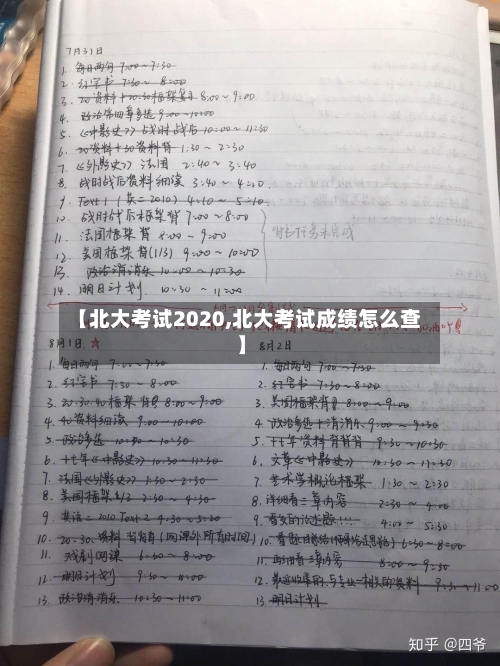 7月31日
1. 每日两句 7:00~7:30
2. 红字书 7:30~8:00
3. 20资料+20.30框架背 8:00~9:00
4. 政治第四章多选 9:00~10:00
5. 《中影史》战时战后 10:00~11:30
6. 20资料+30资料背 1:30~2:30
7. 《外影史》法国 2:40~3:40
8. 战时战后资料细读 3:40~4:20
9. Text 1 (英二2010) 4:10~5:10
10. 战时战后框架背 7:00~8:00
11. 法国框架背 8:00~9:00
12. 美国框架背(1/3) 9:00~10:00
13. 政治消消乐 10:00~10:30
14. 明日计划 10:30~11:00
【北大考试2020,北大考试成绩怎么查
】
8月1日 ☆
1. 每日两句 7:00~7:30
2. 红字书 7:30~8:00
3. 20.30.40框架 背 8:00~9:00
4. 40资料细读 9:00~10:00
5. 政治多选 10:00~10:30
6. 十七年《中影史》 10:30~11:30
7. 法国《外影史》 1:30~2:30
8. 美国框架2/3 2:30~4:30
9. 英语二2010 Text 2 4:30~5:30
10. 20.30.资料 (网课外所有时间)
11. 戏剧网课 6:30~8:00
12. 明日计划
13. 政治消消乐 10:30~11:00
8月2日
1. 每日两句 7:00~7:30
2. 红字书 7:30~8:00
3. 美国框架背 8:00~9:00
4. 政治多选+消消乐 9:00~9:30
5. 十七年资料背背背 9:30~10:30
6. 文章《中影史》 10:30~11:30
7. 艺术学概论框架 1:30~2:30
8. 详细看三章内容 2:30~4:00
9. 看发的论述题!!! 4:00~5:30
10. 6:30~8:00
11. 再细看三章内容 8:00~9:30
12. 资料 9:30~11:00
13. 明日计划
知乎 @四爷